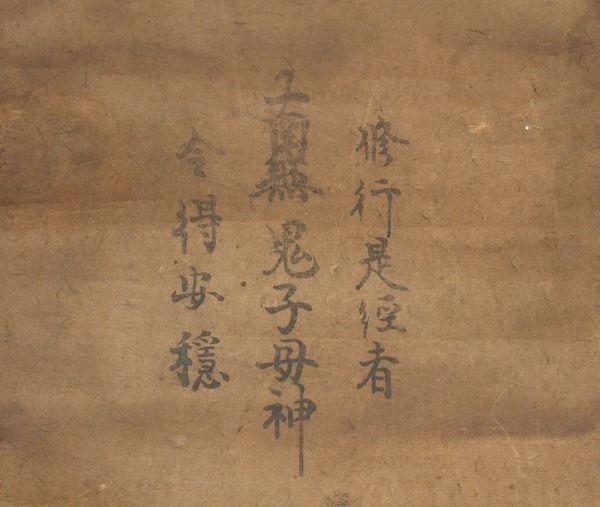 修行是経者
南無鬼子母神
令得安穏